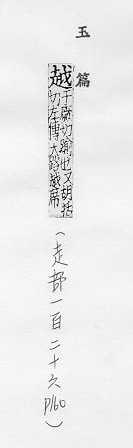 玉篇
越 于厥切踰也又胡括
切左傳大路越席
（走部一百二十六 P160）